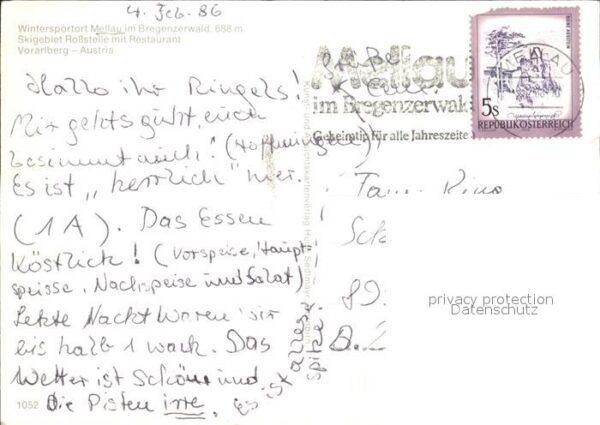 4. Feb. 86
Wintersportort Mellau im Bregenzerwald, 688 m
Skigebiet Roßstelle mit Restaurant
Vorarlberg – Austria
Hallo ihr Ringels!
Mir gehts gut, euch
bestimmt auch! (Hoffnungen)
Es ist „herrlich" hier.
(1A). Das Essen
Köstlich! (Vorspeise, Haupt-
speisse, Nachspeise und Salat)
Letzte Nacht waren wir
bis halb 1 wach. Das
Wetter ist Schön und
Die Pisten irre.
Es ist alles
spitze
1052
Mellau
im Bregenzerwald
Geheimtip für alle Jahreszeiten
MELLAU
5s
REPUBLIK ÖSTERREICH
Fam.
privacy protection
Datenschutz